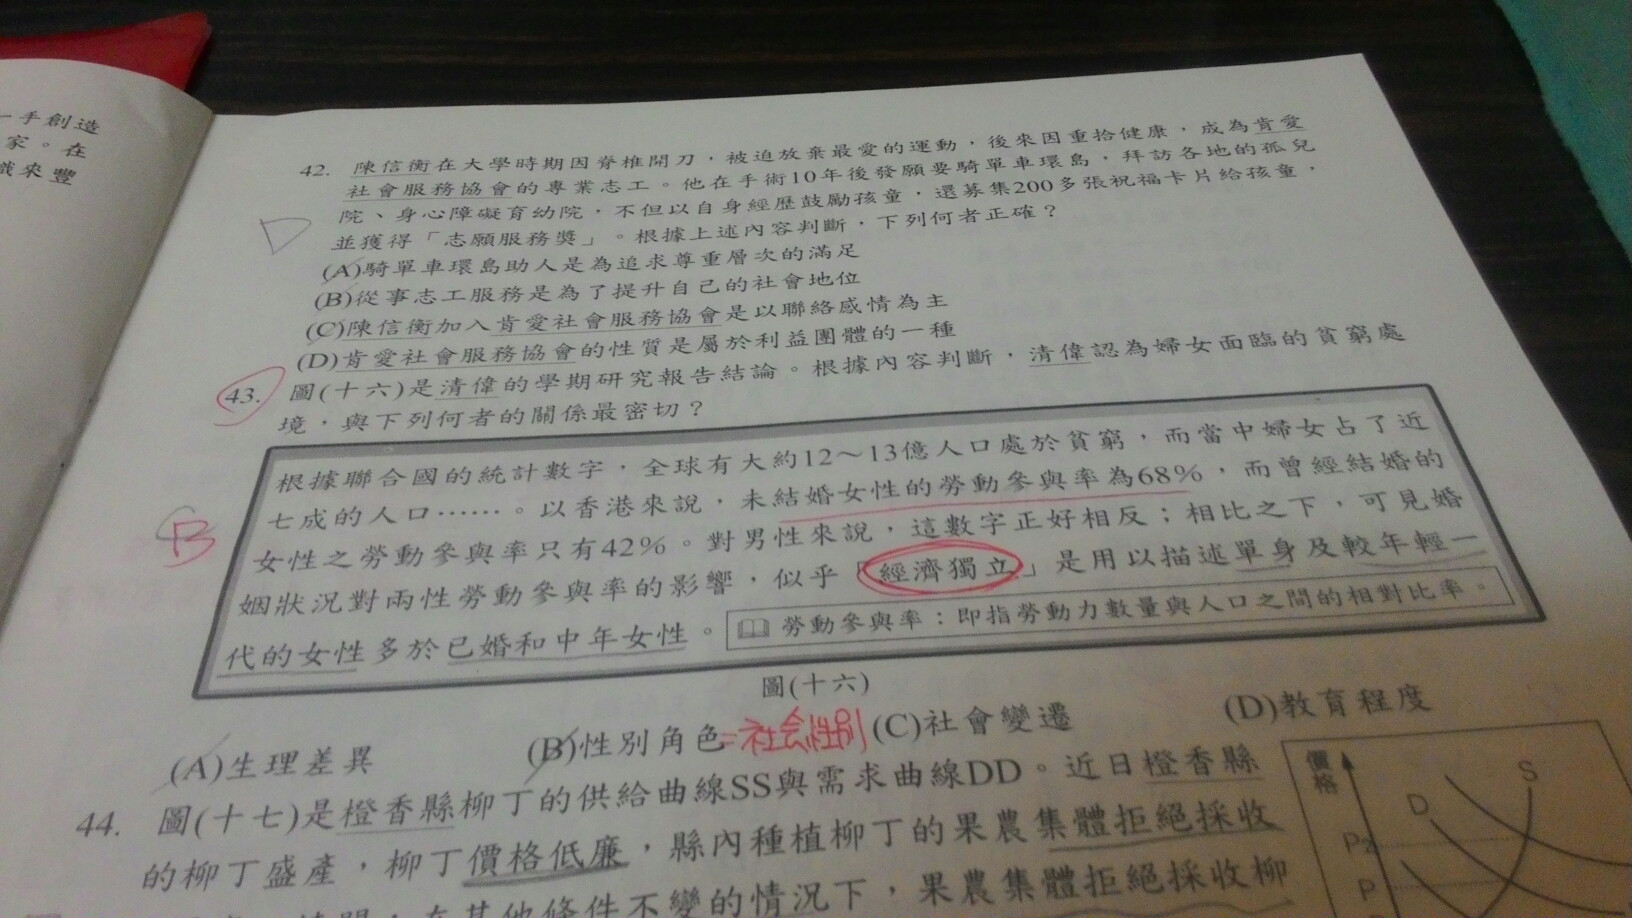 一手創造
家。在
識來豐
42. 陳信衡在大學時期因脊椎開刀，被迫放棄最愛的運動，後來因重拾健康，成為肯愛
社會服務協會的專業志工。他在手術10年後發願要騎單車環島，拜訪各地的孤兒
院、身心障礙育幼院，不但以自身經歷鼓勵孩童，還募集200多張祝福卡片給孩童，
並獲得「志願服務獎」。根據上述內容判斷，下列何者正確？
D
(A)騎單車環島助人是為追求尊重層次的滿足
(B)從事志工服務是為了提升自己的社會地位
(C)陳信衡加入肯愛社會服務協會是以聯絡感情為主
(D)肯愛社會服務協會的性質是屬於利益團體的一種
43. 圖(十六)是清偉的學期研究報告結論。根據內容判斷，清偉認為婦女面臨的貧窮處
境，與下列何者的關係最密切？
根據聯合國的統計數字，全球有大約12～13億人口處於貧窮，而當中婦女占了近
七成的人口……。以香港來說，未結婚女性的勞動參與率為68%，而曾經結婚的
B
女性之勞動參與率只有42%。對男性來說，這數字正好相反；相比之下，可見婚
姻狀況對兩性勞動參與率的影響，似乎「經濟獨立」是用以描述單身及較年輕一
代的女性多於已婚和中年女性。
勞動參與率：即指勞動力數量與人口之間的相對比率。
圖(十六)
(A)生理差異 (B)性別角色=社会性別 (C)社會變遷 (D)教育程度
44. 圖(十七)是橙香縣柳丁的供給曲線SS與需求曲線DD。近日橙香縣
的柳丁盛產，柳丁價格低廉，縣內種植柳丁的果農集體拒絕採收
在其他條件不變的情況下，果農集體拒絕採收柳
價格
S
D
P2
P